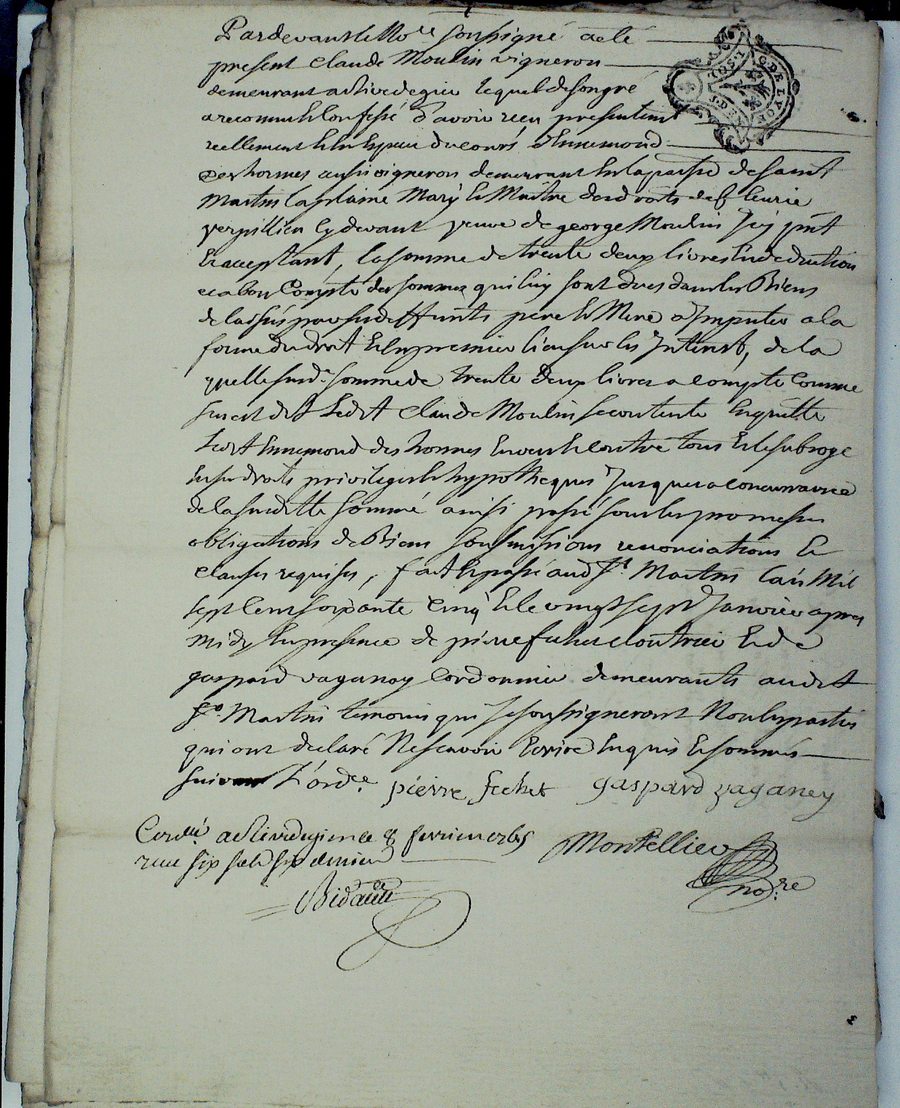 Pardevant le No.re soussigné a esté
present Claude Moulin vigneron
demeurant a Rivedegier lequel de son gré
a reconnu & confessé d'avoir receu presentement
reellement & en especes du cours d'Ennemond
Deshormes aussi vigneron demeurant en la parroisse de Saint
Martin la plaine Mary & Maitre des droits de fleurie
verpillieu cy devant veuve de george Moulin icy pnt
& acceptant, la somme de trente deux livres en deduction
et a bon Compte des sommes qui luy sont dues dans les Biens
de la susd
forme du droit & en premier lieu sur les Interest, de la
quelle susd.e somme de trente deux livres a compte comme
sus est dit Ledit Claude Moulin se contente en quitte
Ledit Ennemond des hormes envers & contre tous & le subroge
en ses droits privileges & hypotheques jusques a concurrance
de la susditte somme ainsi passé sous les promesses
obligations de Biens soumissions renonciations &
clauses requises, fait & passé aud. S.t Martin l'an Mil
sept Cent soixante Cinq & le vingt sept Janvier apres
midy en presence de pierre fechet & de
gaspard vaganay Cordonnier demeurants audit
S.t Martin temoins qui soussigneront Non les parties
qui ont declaré Ne scavoir Ecrire enquis & sommés
suivant L'ord.e pierre fechet gaspard vaganey
Con.llé a Rivedegier le 8 fevrier 1765
receu six sols six deniers
Montellier
no.re
Bidaud
G. DE LYON